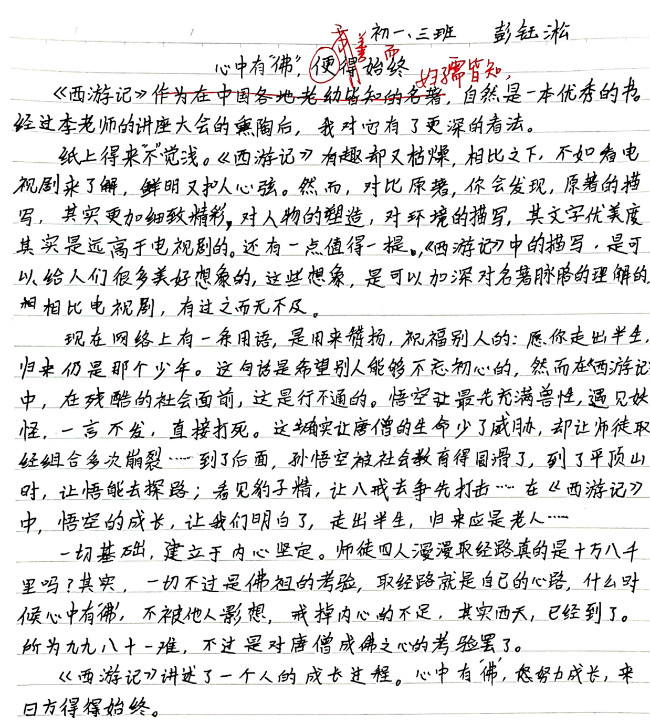 初一、三班 彭钰淞
心中有"佛",便得始终
方 善 而
妇孺皆知,
《西游记》作为在中国各地老幼皆知的名著,自然是一本优秀的书。
经过李老师的讲座大会的熏陶后,我对它有了更深的看法。
纸上得来"不"觉浅。《西游记》有趣却又枯燥,相比之下,不如看电
视剧来了解,鲜明又扣人心弦。然而,对比原著,你会发现,原著的描
写,其实更加细致精彩,对人物的塑造,对环境的描写,其文字优美度
其实是远高于电视剧的。还有一点值得一提,《西游记》中的描写,是可
以给人们很多美好想象的,这些想象,是可以加深对名著脉胳的理解的,
相相比电视剧,有过之而无不及。
现在网络上有一条用语,是用来赞扬,祝福别人的:愿你走出半生,
归来仍是那个少年。这句话是希望别人能够不忘初心的,然而在《西游记
中,在残酷的社会面前,这是行不通的。悟空让最先充满兽性,遇见妖
怪,一言不发,直接打死。这确实让唐僧的生命少了威胁,却让师徒取
经组合多次崩裂……到了后面,孙悟空被社会教育得圆滑了,到了平顶山
时,让悟能去探路;看见豹子精,让八戒去争先打击……在《西游记》
中,悟空的成长,让我们明白了,走出半生,归来应是老人……
一切基础,建立于内心坚定。师徒四人漫漫取经路真的是十万八千
里吗?其实,一切不过是佛祖的考验,取经路就是自己的心路,什么时
候心中有佛,不被他人影想,戒掉内心的不足,其实西天,已经到了。
所为九九八十一难,不过是对唐僧成佛之心的考验罢了。
《西游记》讲述了一个人的成长过程。心中有"佛",您努力成长,来
日方得得始终。